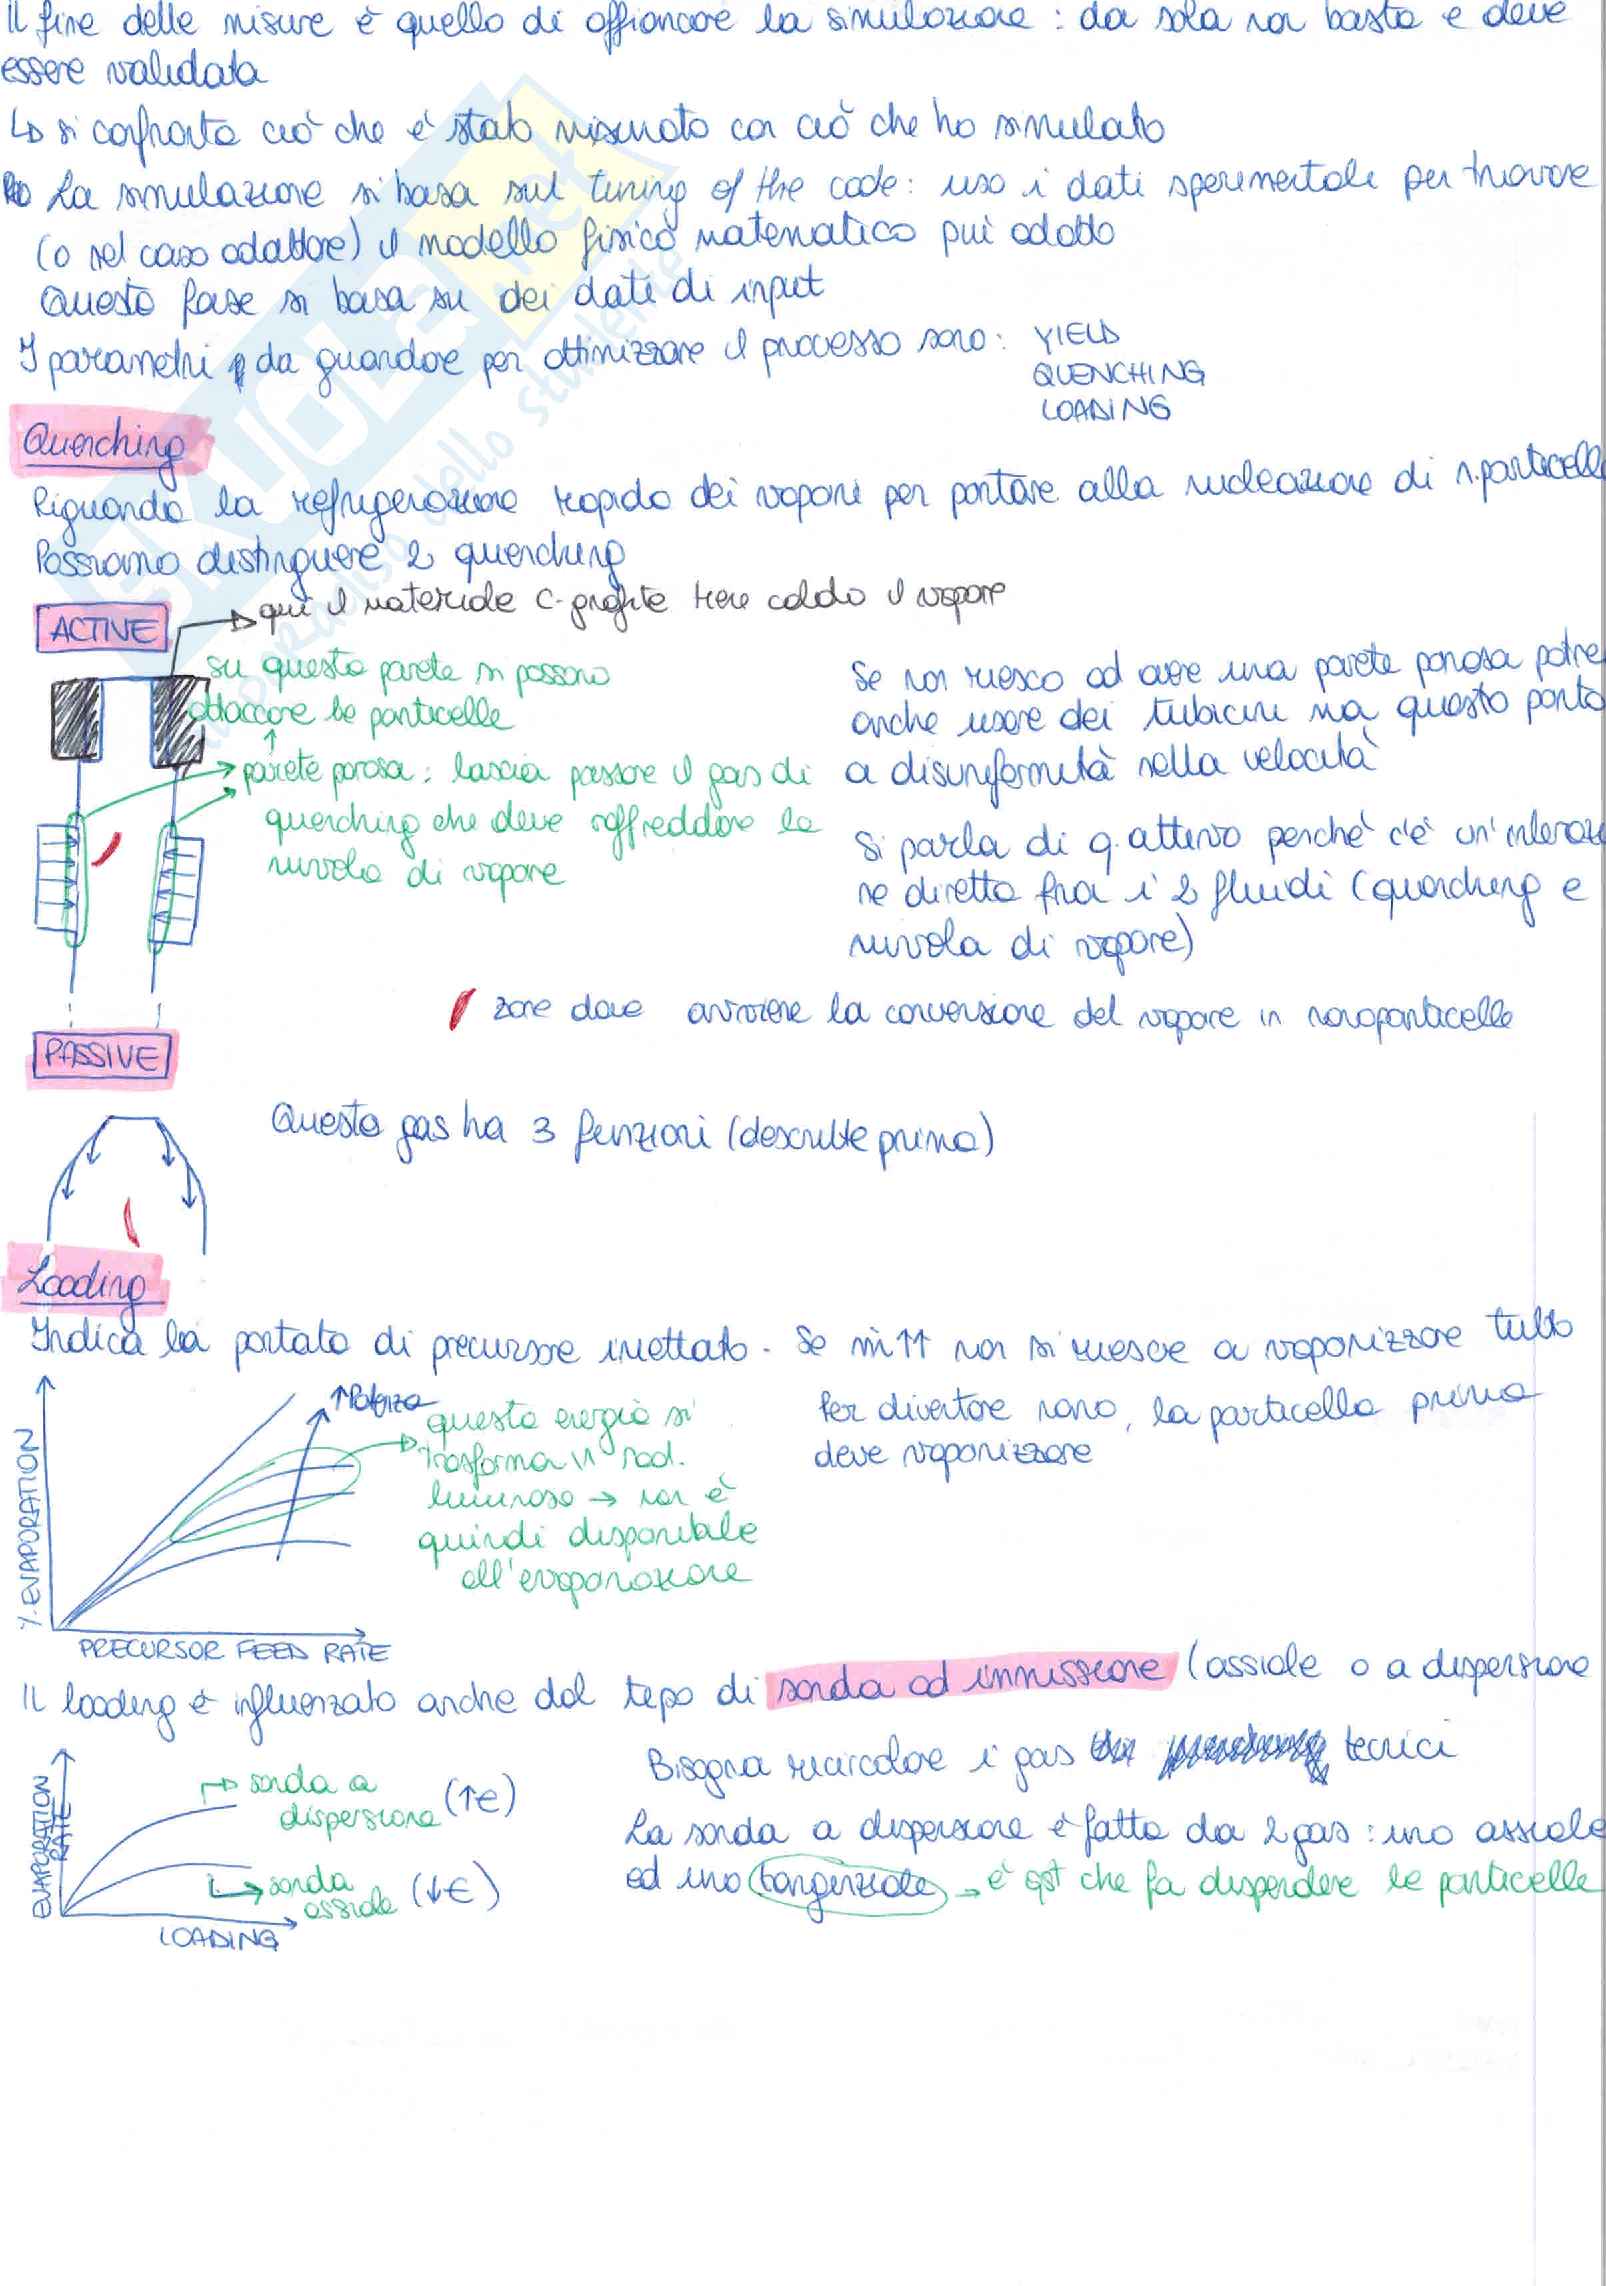 Il fine delle misure è quello di affiancare la simulazione : da sola non basta e deve
essere validata
↳ si confronta ciò che è stato misurato con ciò che ho simulato
La simulazione si basa sul tuning of the code : uso i dati sperimentali per trovare
(o nel caso adattare) il modello fisico matematico più adatto
Questa fase si basa su dei dati di input
I parametri da guardare per ottimizzare il processo sono : YIELD
QUENCHING
LOADING
Quenching
Riguarda la refrigerazione rapida dei vapori per portare alla nucleazione di n.particelle
Possiamo distinguere 2 quenching
ACTIVE
→ qui il materiale C-grafite tiene caldo il vapore
su questa parete si possono
attaccare le particelle
↑
parete porosa : lascia passare il gas di
quenching che deve raffreddare la
nuvola di vapore
Se non riesco ad avere una parete porosa potrei
anche usare dei tubicini ma questo porta
a disuniformità nella velocità
Si parla di q. attivo perché c'è un'interazio
ne diretta fra i 2 fluidi (quenching e
nuvola di vapore)
zone dove avviene la conversione del vapore in nanoparticelle
PASSIVE
Questo gas ha 3 funzioni (descritte prima)
Loading
Indica la portata di precursore iniettato. Se ṁ ↑↑ non si riesce a vaporizzare tutto
Per diventare nano, la particella prima
deve vaporizzare
% EVAPORATION
↑Potenza
questa energia si
trasforma in rad.
luminosa → non è
quindi disponibile
all'evaporazione
PRECURSOR FEED RATE
Il loading è influenzato anche dal tipo di sonda ad immissione (assiale o a dispersione
EVAPORATION RATE
sonda a
dispersione (↑€)
sonda
assiale (↓€)
LOADING
Bisogna ricircolare i gas tecnici
La sonda a dispersione è fatta da 2 gas : uno assiale
ed uno tangenziale → è qst che fa disperdere le particelle
SKUOLA.net
il paradiso dello studente